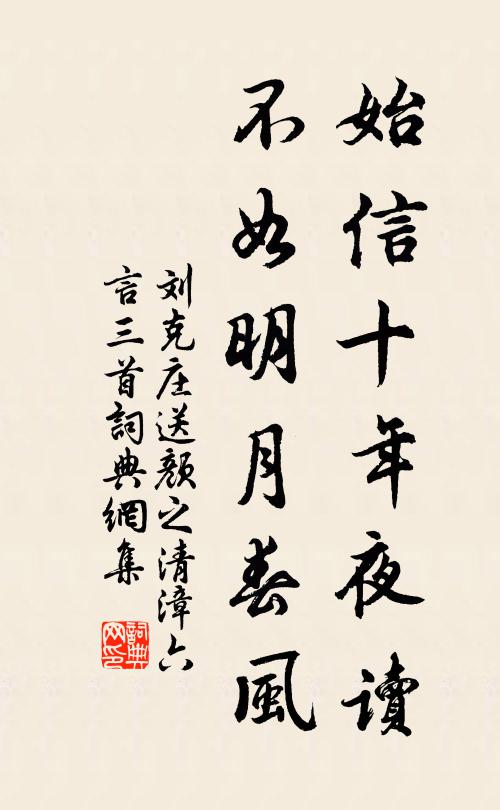 始信十年夜讀
不如明月春風
刘克庄送颜之清漳六
言三首詞典網集
詞典
网印